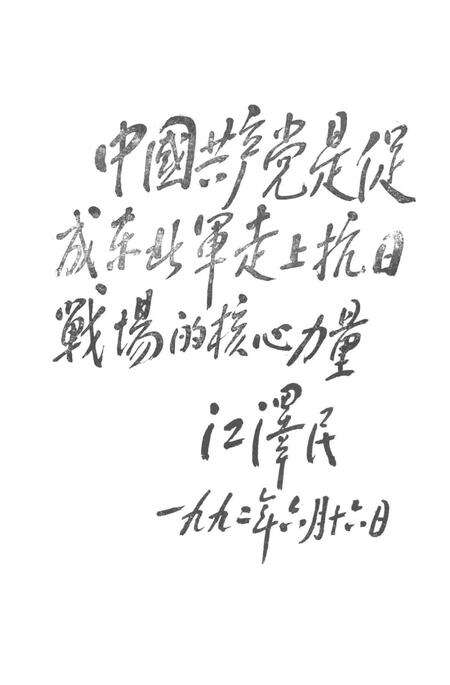 中國共产党是促
成东北軍走上抗日
戰場的核心力量
江澤民
一九九二年六月十六日